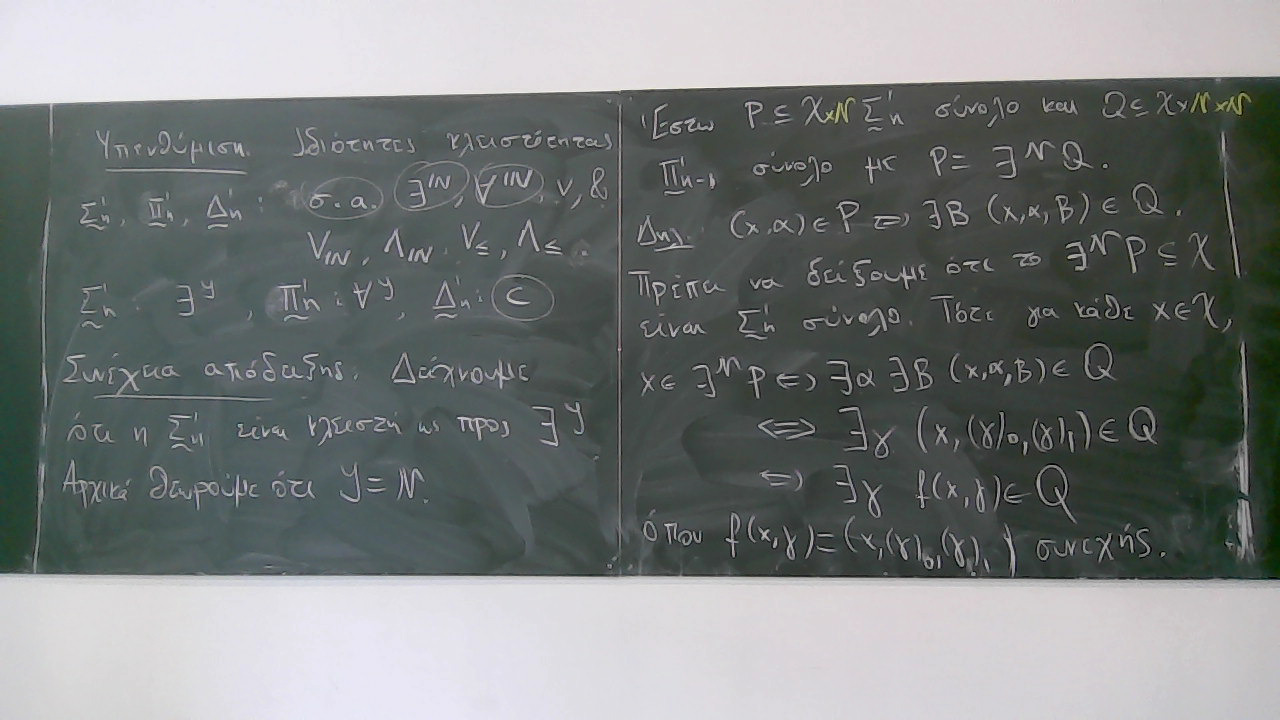 Υπενθύμιση. Ιδιότητες κλειστότητας
Σ̰¹ₙ, Π̰¹ₙ, Δ̰¹ₙ : σ.α. ∃^ℕ, ∀^ℕ, ∨, &
∨_ℕ, ∧_ℕ, ∨_≤, ∧_≤.
Σ̰¹ₙ : ∃^𝒴, Π̰¹ₙ : ∀^𝒴, Δ̰¹ₙ : C
Συνέχεια απόδειξης. Δείχνουμε
ότι η Σ̰¹ₙ είναι κλειστή ως προς ∃^𝒴
Αρχικά θεωρούμε ότι 𝒴 = 𝒩.
Έστω P ⊆ 𝒳×𝒩 Σ̰¹ₙ σύνολο και Q ⊆ 𝒳×𝒩×𝒩
Π̰¹ₙ₋₁ σύνολο με P = ∃^𝒩 Q.
Δηλ. (x,α) ∈ P ⇔ ∃β (x,α,β) ∈ Q.
Πρέπει να δείξουμε ότι το ∃^𝒩 P ⊆ 𝒳
είναι Σ̰¹ₙ σύνολο. Τότε για κάθε x ∈ 𝒳,
x ∈ ∃^𝒩 P ⇔ ∃α ∃β (x,α,β) ∈ Q
⇔ ∃γ (x,(γ)₀,(γ)₁) ∈ Q
⇔ ∃γ f(x,γ) ∈ Q
όπου f(x,γ) = (x,(γ)₀,(γ)₁) συνεχής.